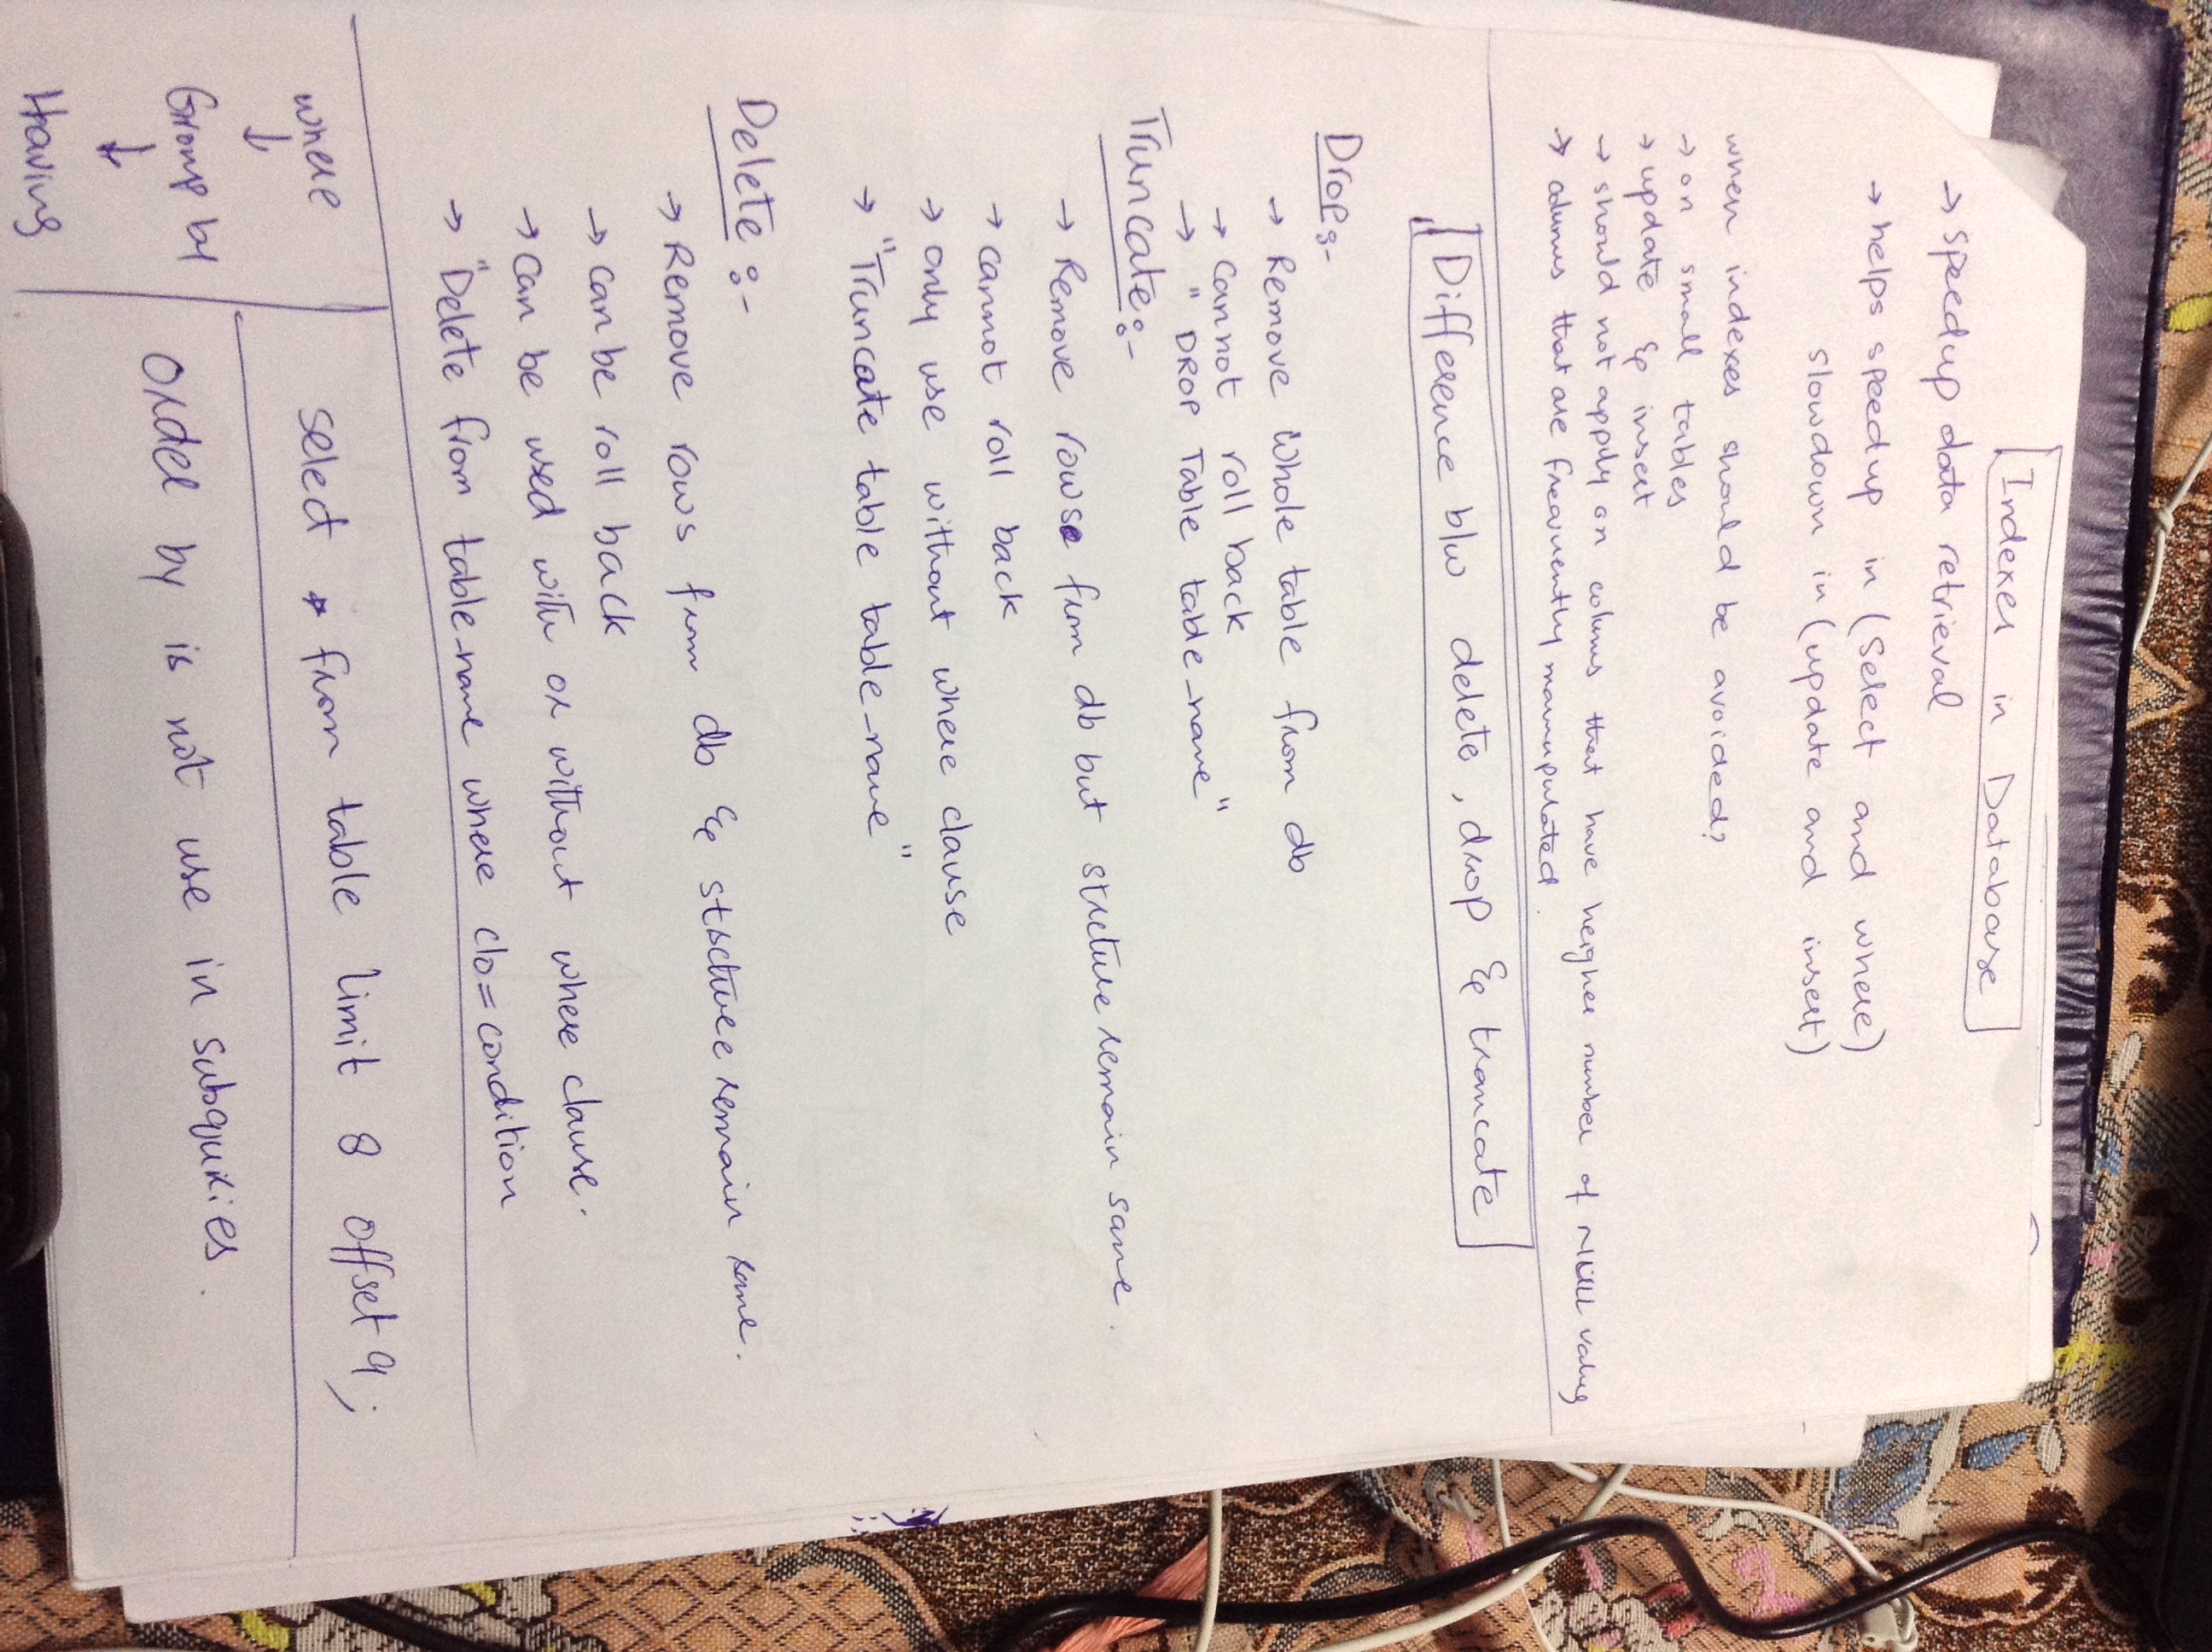 Indexes in Database
→ speedup data retrieval
→ helps speedup in (Select and where)
slowdown in (update and insert)
when indexes should be avoided?
→ on small tables
→ update & insert
→ should not apply on colums that have heigher number of NULL values
→ colums that are frequently manupulated.
Difference b/w delete, drop & truncate
Drop:-
→ Remove Whole table from db
→ Cannot roll back
→ " DROP Table table_name"
Truncate:-
→ Remove rows from db but strcture remain same.
→ cannot roll back
→ only use without where clause
→ "Truncate table table_name"
Delete :-
→ Remove rows from db & strcture remain same.
→ can be roll back
→ can be used with or without where clause.
→ "Delete from table_name where clo=condition
where
↓
Group by
↓
Having
select * from table limit 8 offset 9;
Order by is not use in subquries.